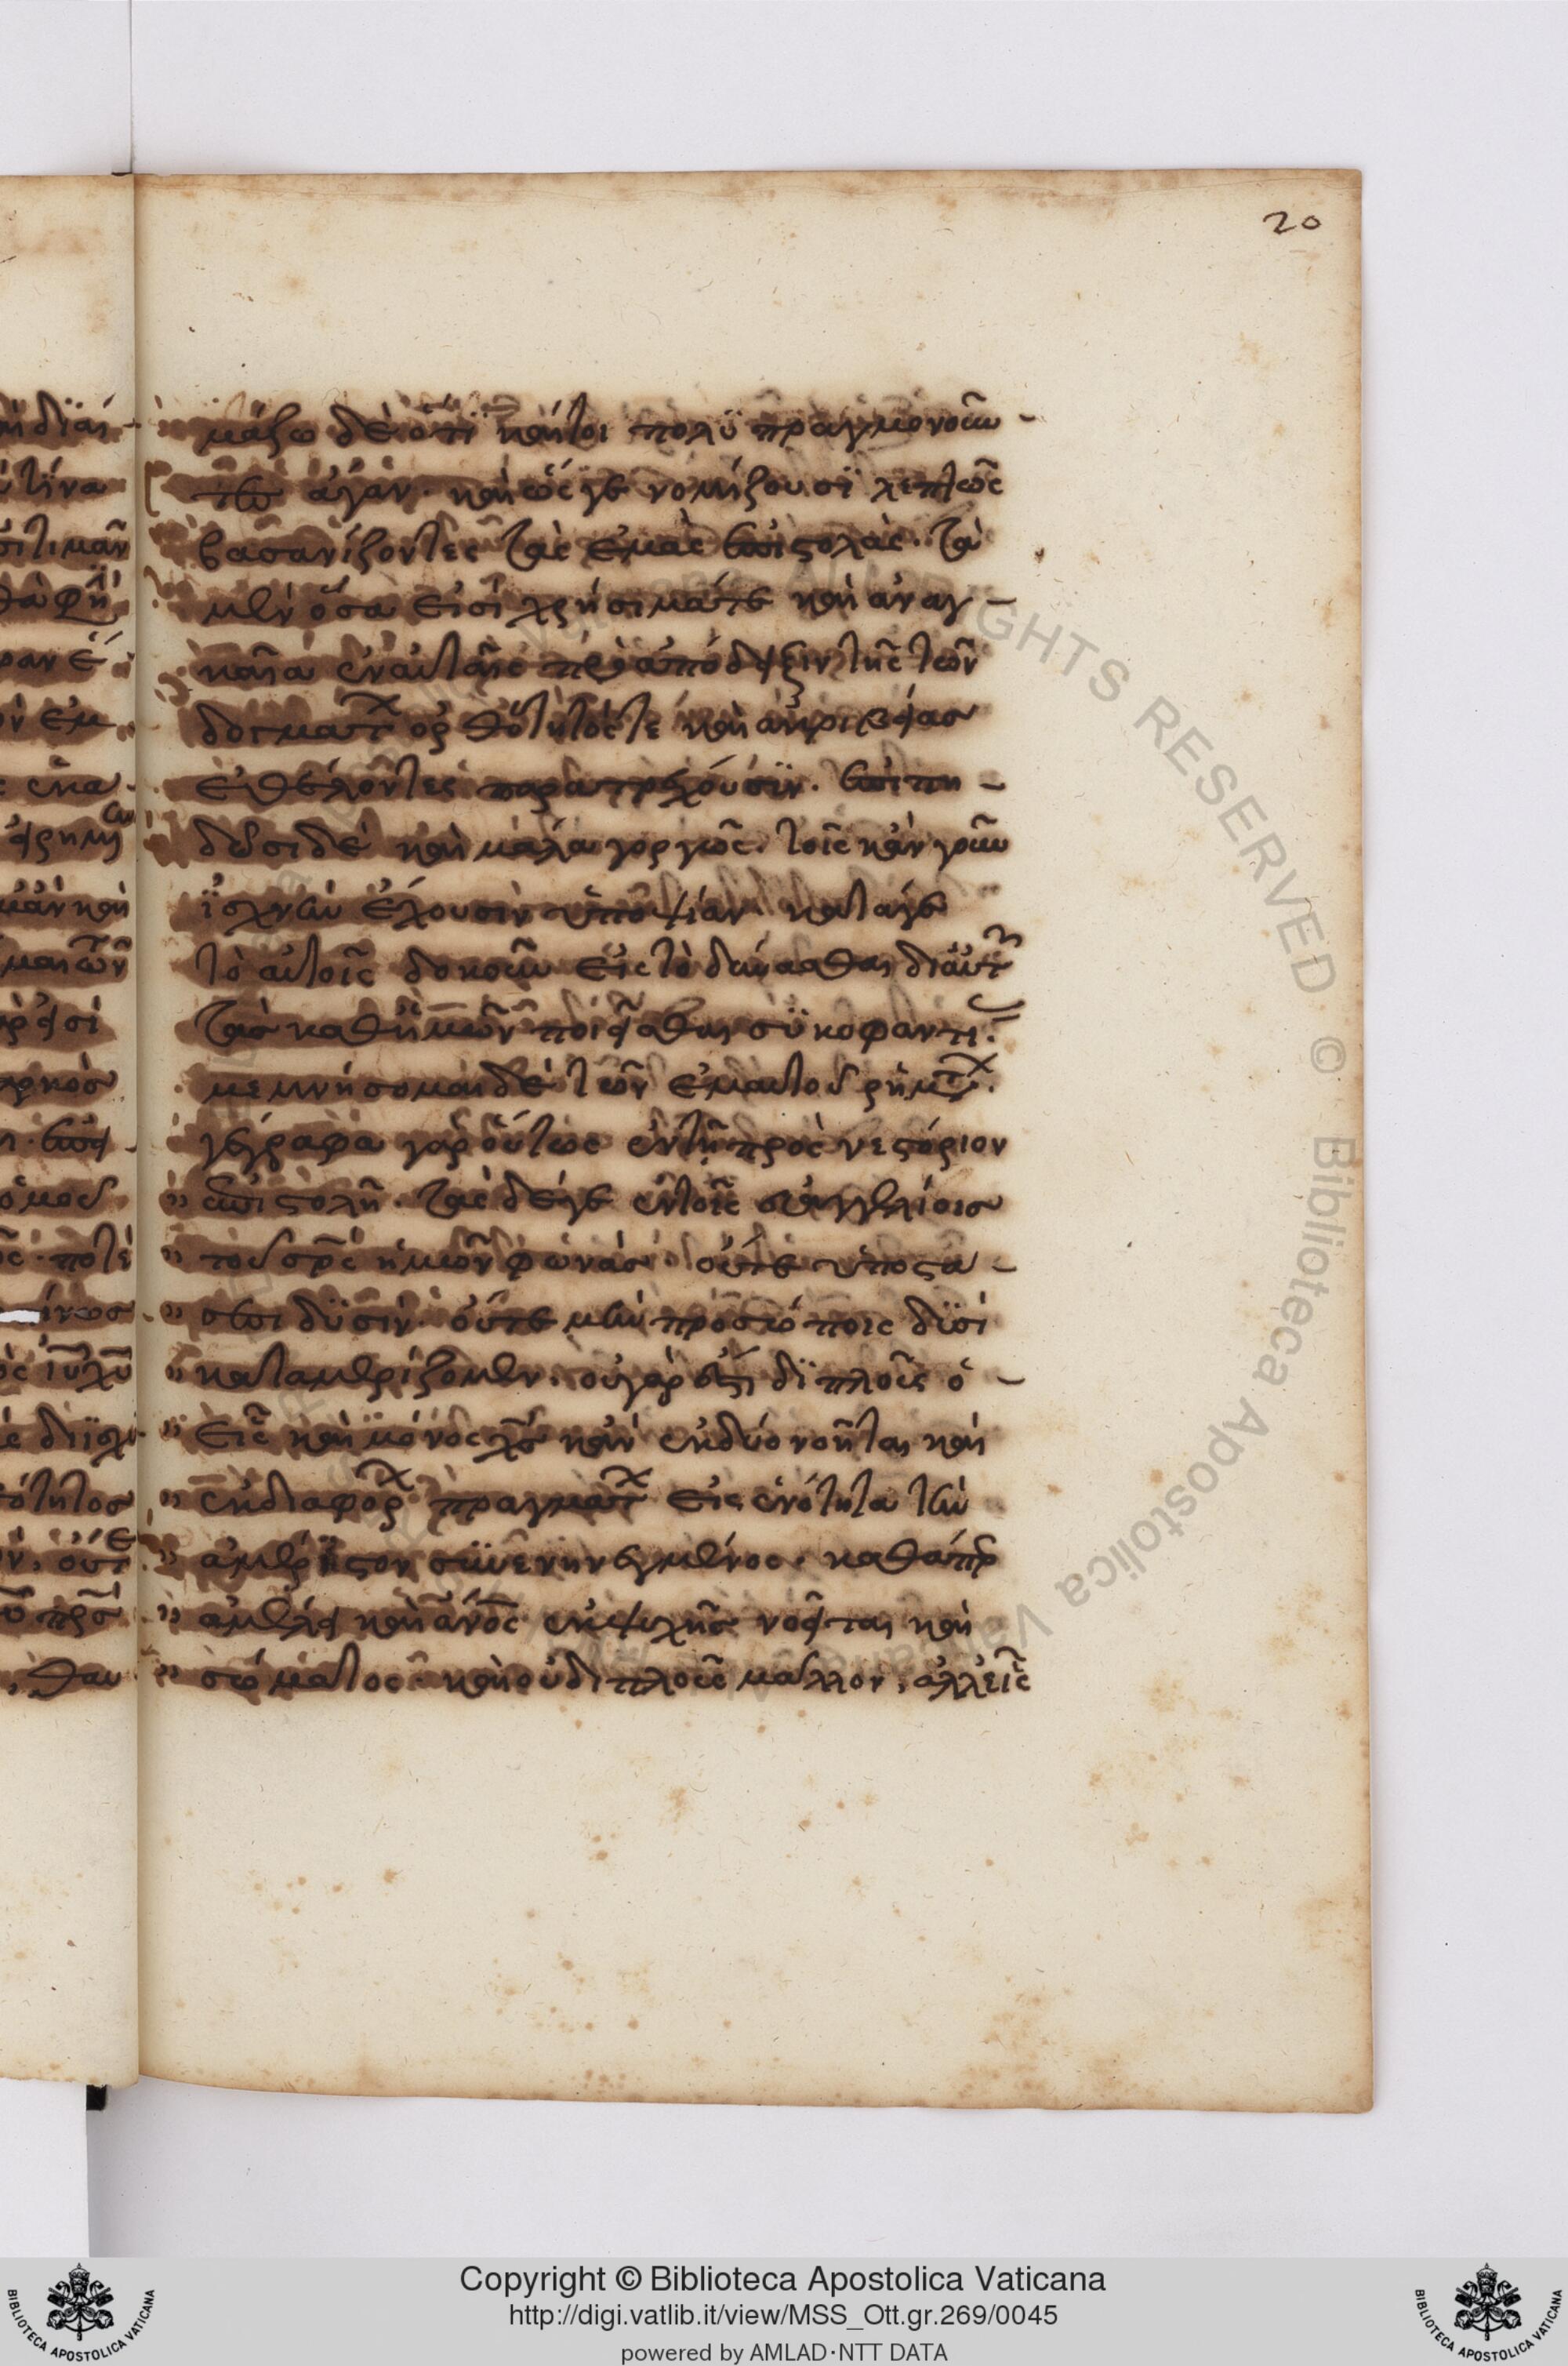 20
μάζω δὲ ὅτι καίτοι πολυπραγμονοῦν
τες ἄγαν· καὶ ὥς γε νομίζουσι λεπτῶς
βασανίζοντες τὰς ἐμὰς ἐπιστολάς· τὰ
μὲν ὅσα εἰσὶ χρήσιμά τε καὶ ἀναγ
καῖα ἐν αὐταῖς πρὸς ἀπόδειξιν τῆς τῶν
δογμάτ ὀρθότητός τε καὶ ἀκριβείας
ἐθελοντὲς παρατρέχουσιν. ἐπιπη
δῶσι δὲ καὶ μάλα γοργῶς. τοῖς κἂν γοῦν
ἰσχνὴν ἔχουσιν ὑποψίαν· κατά γε
τὸ αὐτοῖς δοκοῦν εἰς τὸ δύνασθαι δι αὐτ
τὰς καθ ἡμῶν ποιεῖσθαι συκοφαντι.
μεμνήσομαι δὲ τῶν ἐμαυτοῦ ῥημτ.
γέγραφα γὰρ οὕτως ἐν τῇ πρὸς νεστόριον
ἐπιστολῇ. τὰς δέ γε ἐν τοῖς εὐαγγελίοις
τοῦ σρς ἡμῶν φωνὰς· οὔτε ὑποστά
σεσι δυσὶν· οὔτε μὴν προσώποις δυσὶ
καταμερίζομεν. οὐ γάρ ἐστι διπλοῦς ὁ
εἷς καὶ μόνος χς κἂν ἐκ δύο νοῆται καὶ
ἐκ διαφόρ πραγμάτ εἰς ἑνότητα τὴν
ἀμέριστον συνενηνεγμένος· καθάπρ
ἀμέλει καὶ ανος ἐκ ψυχῆς νοεῖται καὶ
σώματος· καὶ οὐ διπλοῦς μᾶλλον, ἀλλ εἷς
RIGHTS RESERVED © Biblioteca Apostolica Vaticana
Copyright © Biblioteca Apostolica Vaticana
http://digi.vatlib.it/view/MSS_Ott.gr.269/0045
powered by AMLAD·NTT DATA
BIBLIOTECA APOSTOLICA VATICANA
BIBLIOTECA APOSTOLICA VATICANA